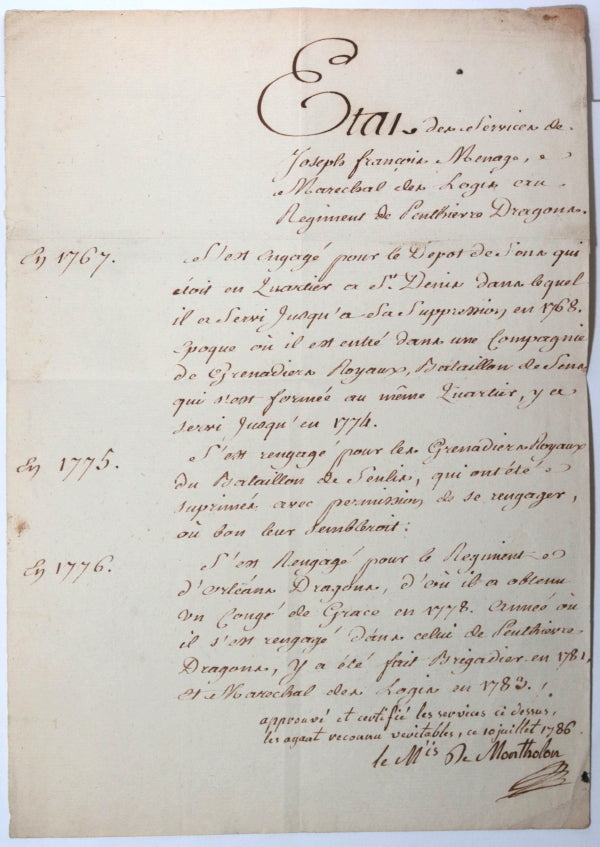 Etat des Services de
Joseph françois Menage,
Marechal des Logis au
Regiment de Penthievre Dragons.
En 1767. S'est engagé pour le Depot de Sens qui
étoit en Quartier a St. Denis dans lequel
il a Servi Jusqu'a Sa Suppression en 1768.
époque où il est entré dans une Compagnie
de Grenadiers Royaux, Bataillon de Sens
qui s'est formée au même Quartier, y a
servi Jusqu'en 1774.
En 1775. S'est rengagé pour les Grenadiers Royaux
du Bataillon de Senlis, qui ont été
suprimés avec permission de se rengager,
où bon leur sembleroit:
En 1776. S'est Rengagé pour le Regiment
d'orléans Dragons, d'où il a obtenu
un Congé de Grace en 1778. année où
il s'est rengagé dans celui de Penthievre
Dragons, y a été fait Brigadier en 1781,
et Marechal des Logis en 1783.
approuvé et certifié les services ci dessus,
les ayant reconnu veritables, ce 10 juillet 1786.
le Mis De Montholon